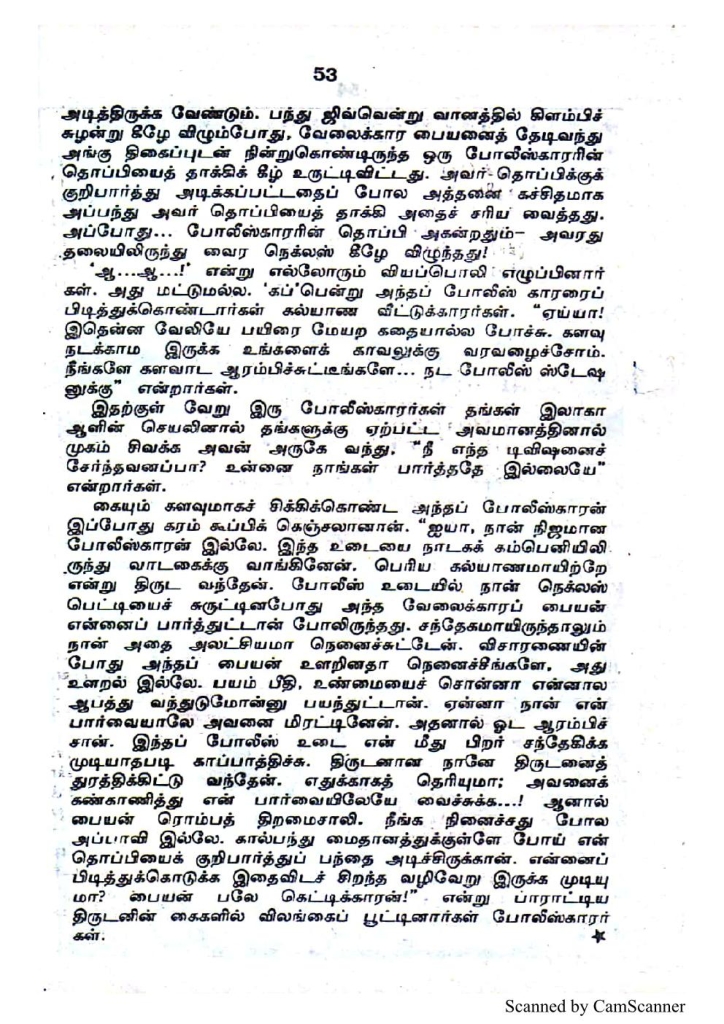 53
அடித்திருக்க வேண்டும். பந்து ஜிவ்வென்று வானத்தில் கிளம்பிச்
சுழன்று கீழே விழும்போது, வேலைக்கார பையனைத் தேடிவந்து
அங்கு திகைப்புடன் நின்றுகொண்டிருந்த ஒரு போலீஸ்காரரின்
தொப்பியைத் தாக்கிக் கீழ் உருட்டிவிட்டது. அவர் தொப்பிக்குக்
குறிபார்த்து அடிக்கப்பட்டதைப் போல அத்தனை கச்சிதமாக
அப்பந்து அவர் தொப்பியைத் தாக்கி அதைச் சரிய வைத்தது.
அப்போது... போலீஸ்காரரின் தொப்பி அகன்றதும்– அவரது
தலையிலிருந்து வைர நெக்லஸ் கீழே விழுந்தது!
'ஆ...ஆ...!' என்று எல்லோரும் வியப்பொலி எழுப்பினார்
கள். அது மட்டுமல்ல. 'கப்'பென்று அந்தப் போலீஸ் காரரைப்
பிடித்துக்கொண்டார்கள் கல்யாண வீட்டுக்காரர்கள். "ஏய்யா!
இதென்ன வேலியே பயிரை மேயற கதையால்ல போச்சு. களவு
நடக்காம இருக்க உங்களைக் காவலுக்கு வரவழைச்சோம்.
நீங்களே களவாட ஆரம்பிச்சுட்டீங்களே... நட போலீஸ் ஸ்டேஷ
னுக்கு" என்றார்கள்.
இதற்குள் வேறு இரு போலீஸ்காரர்கள் தங்கள் இலாகா
ஆளின் செயலினால் தங்களுக்கு ஏற்பட்ட அவமானத்தினால்
முகம் சிவக்க அவன் அருகே வந்து, "நீ எந்த டிவிஷனைச்
சேர்ந்தவனப்பா? உன்னை நாங்கள் பார்த்ததே இல்லையே"
என்றார்கள்.
கையும் களவுமாகச் சிக்கிக்கொண்ட அந்தப் போலீஸ்காரன்
இப்போது கரம் கூப்பிக் கெஞ்சலானான். "ஐயா, நான் நிஜமான
போலீஸ்காரன் இல்லே. இந்த உடையை நாடகக் கம்பெனியிலி
ருந்து வாடகைக்கு வாங்கினேன். பெரிய கல்யாணமாயிற்றே
என்று திருட வந்தேன். போலீஸ் உடையில் நான் நெக்லஸ்
பெட்டியைச் சுருட்டினபோது அந்த வேலைக்காரப் பையன்
என்னைப் பார்த்துட்டான் போலிருந்தது. சந்தேகமாயிருந்தாலும்
நான் அதை அலட்சியமா நெனைச்சுட்டேன். விசாரணையின்
போது அந்தப் பையன் உளறினதா நெனைச்சீங்களே, அது
உளறல் இல்லே. பயம் பீதி, உண்மையைச் சொன்னா என்னால
ஆபத்து வந்துடுமோன்னு பயந்துட்டான். ஏன்னா நான் என்
பார்வையாலே அவனை மிரட்டினேன். அதனால் ஓட ஆரம்பிச்
சான். இந்தப் போலீஸ் உடை என் மீது பிறர் சந்தேகிக்க
முடியாதபடி காப்பாத்திச்சு. திருடனான நானே திருடனைத்
துரத்திக்கிட்டு வந்தேன். எதுக்காகத் தெரியுமா; அவனைக்
கண்காணித்து என் பார்வையிலேயே வைச்சுக்க...! ஆனால்
பையன் ரொம்பத் திறமைசாலி. நீங்க நினைச்சது போல
அப்பாவி இல்லே. கால்பந்து மைதானத்துக்குள்ளே போய் என்
தொப்பியைக் குறிபார்த்துப் பந்தை அடிச்சிருக்கான். என்னைப்
பிடித்துக்கொடுக்க இதைவிடச் சிறந்த வழிவேறு இருக்க முடியு
மா? பையன் பலே கெட்டிக்காரன்!" என்று பாராட்டிய
திருடனின் கைகளில் விலங்கைப் பூட்டினார்கள் போலீஸ்காரர்
கள். ★
Scanned by CamScanner